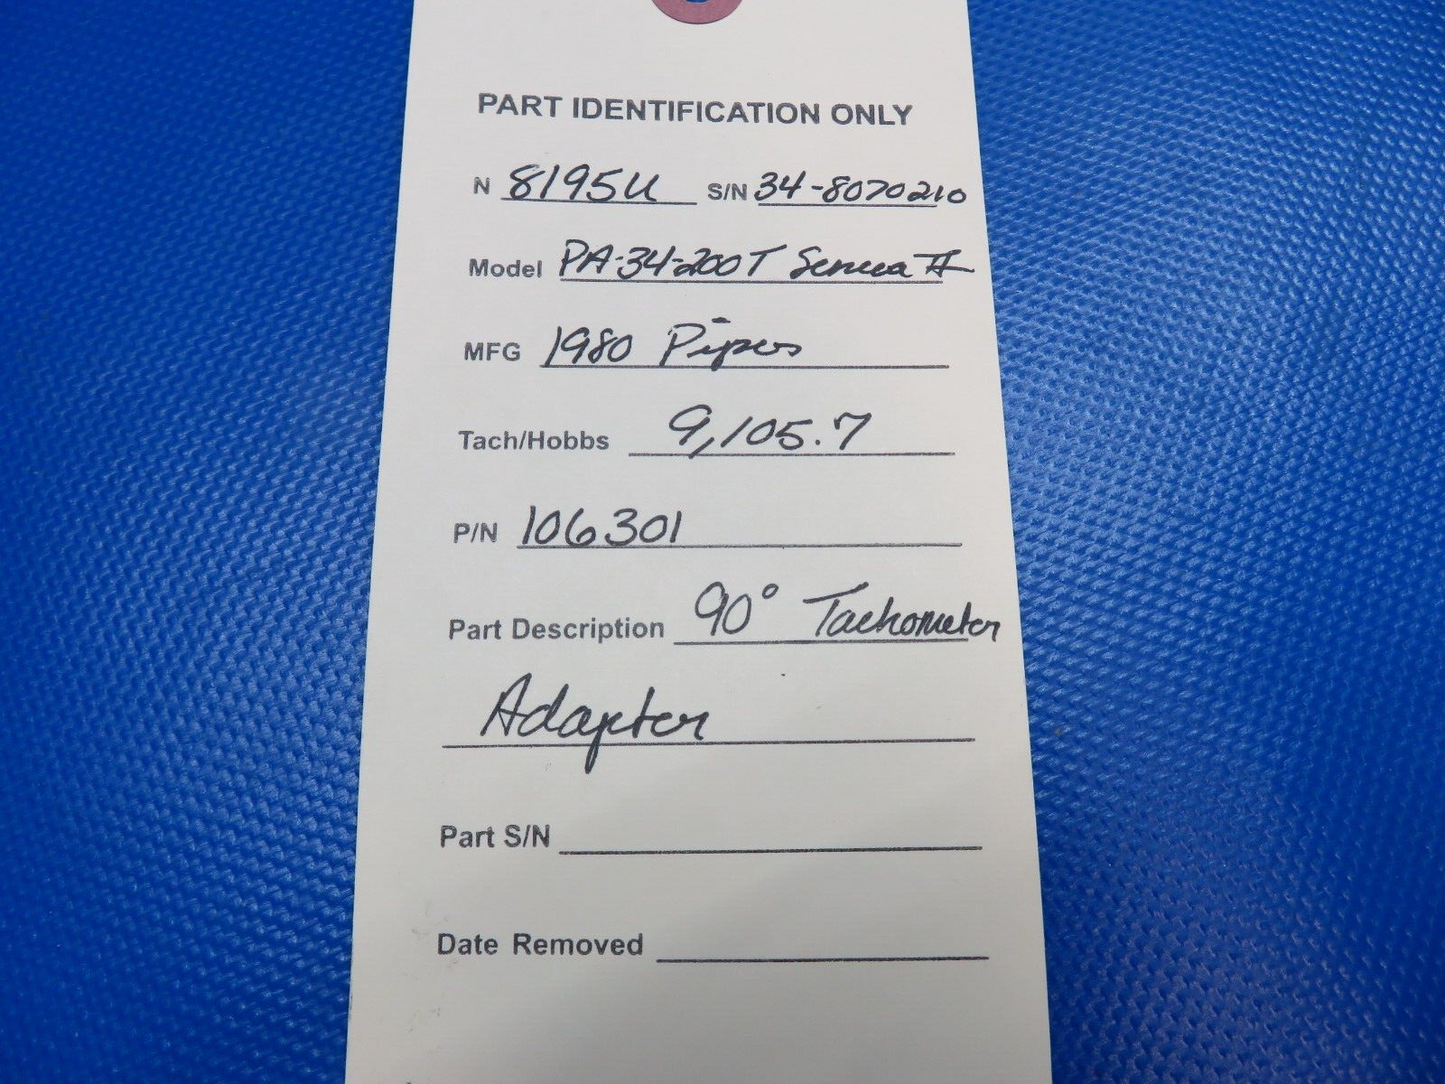 PART IDENTIFICATION ONLY
N 8195U S/N 34-8070210
Model PA-34-200T Seneca II
MFG 1980 Piper
Tach/Hobbs 9,105.7
P/N 106301
Part Description 90° Tachometer
Adapter
Part S/N
Date Removed